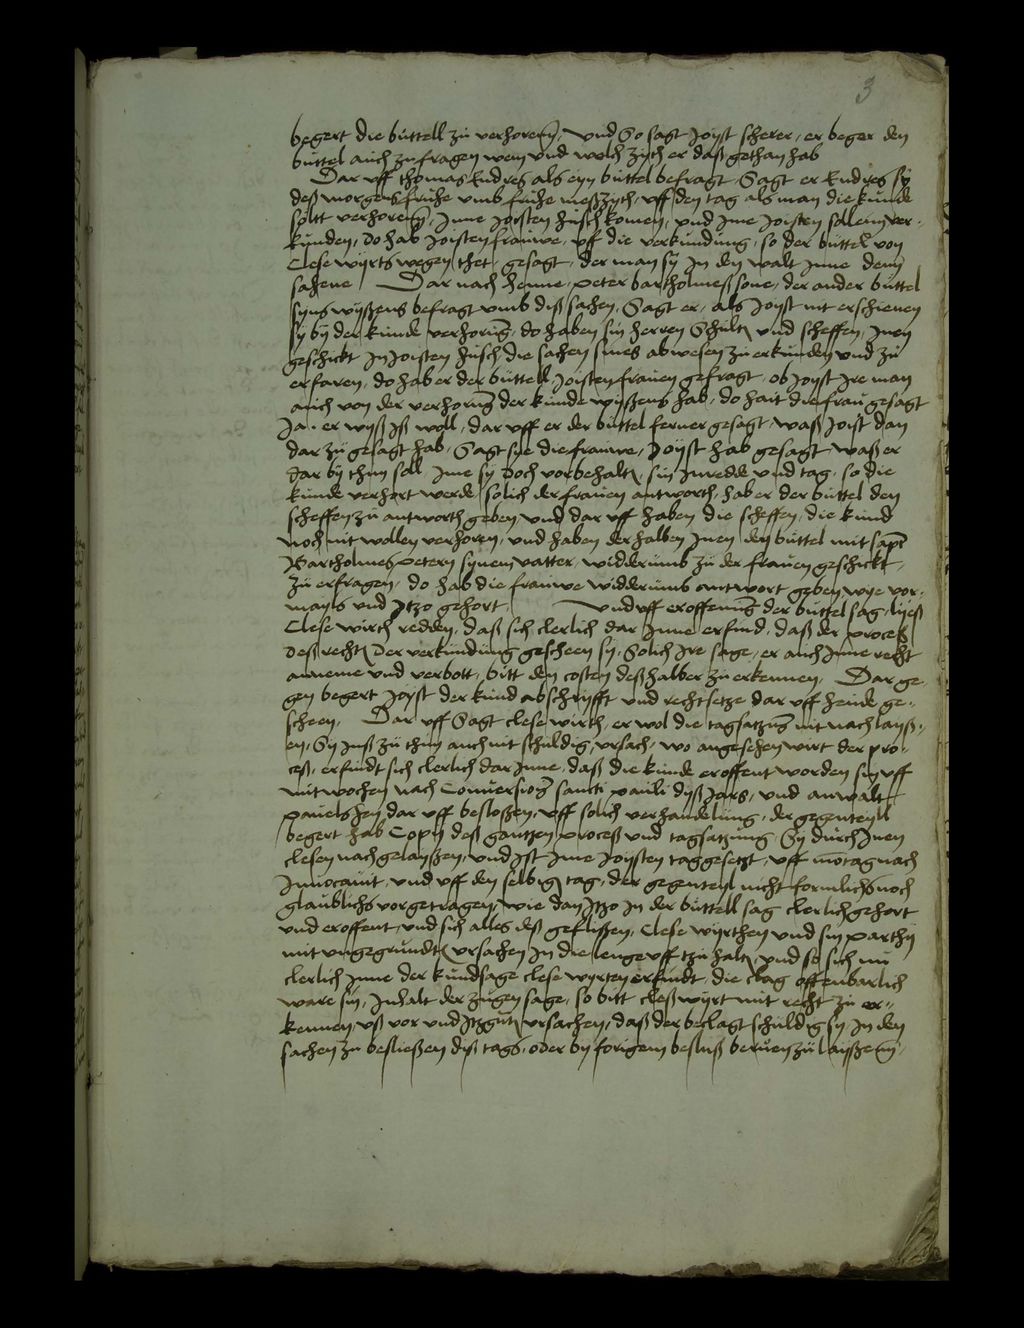 3
begert die büttell zü verhoren, und So sagt Joyst scherer, er beger den
büttel auch zu fragen wem und welch zyth er daß gethan hab
Dar uff thomas Endres als eyn büttel befragt Sagt er Endres sÿ
deß morgens fruhe umb fruhe meßzyth, uff den tag als man die kunde
soltt verhoren, Jnne Joysten husch komen, und Jme Joisten sallem ver-
kunden, do hab Joisten frauwe, uff die verkundung, so der büttel von
Clese wyrts wegen thet, gesagt, der man sÿ Jn den walt Jnne
Dar nach henne, peter bartholmeß sone, der ander büttel
syns wyßens befragt umb diß sachen, Sagt er, als Joyst nit erschienen
sÿ bÿ der kunde verhorung, do haben sin herren Schult und scheffen, Jnen
geschickt Jn Joisten husch die sachen sines abwesen zu erkunden und zü
erfaren, do hab er der büttell Joisten frauen gefragt, ob Joyst Jre man
auch von der verhorung der kunde wyßens hab, do hait die frau gesagt
Ja. er wyß Jß woll, dar uff er der büttel ferner gesagt, waß Joist dan
dar zü gesagt hab, Sagt sye die frauwe, Joÿst hab gesagt waß er
dar bÿ thun soll Jme sÿ doch vorbehalt sin Jnredde und tag, so die
kunde verhort werde, solich der frauen antworth, hab er der büttel den
scheffen zü antworth geben und dar uff haben die scheffen, die kund
noch nit wollen verhoren, und haben der halben Jnen den büttel mit sampt
Bartholmes petern synem vatter, widderumb zü der frauen geschickt,
zü erfragen, do hab die frauwe widderumb antwort geben wye vor-
mayls und Jtzo gehort, Und uff eroffenung der büttel sag, lyeß
Clese wirth redden, daß sich clerlich dar Jnne erfind, daß der proceß
deß recht der verkündüng gescheen sÿ, Solich Jre sage, er auch Jnne recht
anneme und verbott, bitt den costen deßhalber zü erkennen, Dar ge
gen begert Joyst der kund abschryfft und rechtsetze dar uff heude ge-
scheen, Dar uff Sagt clese wirth, er wol die tagsatzung nit nach layß-
en, Sÿ Juß zü thun auch nit schuldig, ursach, wo angesehen wirt der pro-
ceß, erfindt sich clerlich dar Jnne, daß die kunde eroffent worden sin uff
mitwochen nach Conversionis sancti pauli dyß Jars, und anwalt
dar uff besloßen, uff solich verhandelung, der gegenteyll
begert hab Copÿ deß gantzen proceß und tagsatzung Sÿ durch Jnen
clesen nach gelaußen, und Jst Jme Joysten tag gesetzt, uff montag nach
Jnnocavit, und uff den selbig tag, der gegenteyl nicht formlichs noch
glaublichs vorgetragen, wie dan Jtzo Jn der büttell sag clerlich gehort
und eroffent, und sich alles deß geflissen, Clese wyrthen und sin parthÿ
mit ungegrundt ursachen Jn die lenge uff tzu halt, und so sich nü
clerlich Jnne der kundsage clese wyrten erfindt, die clag offenbarlich
ware sin, Jnhalt der zugen sage, so bitt cleß wyrt mit recht zü er-
kennen, uß vor und Jtzgut ursachen, daß der beclagt schuldig sÿ Jn den
sachen zu besließen diß tags, oder bÿ forigem besluß beruen zü laißen,